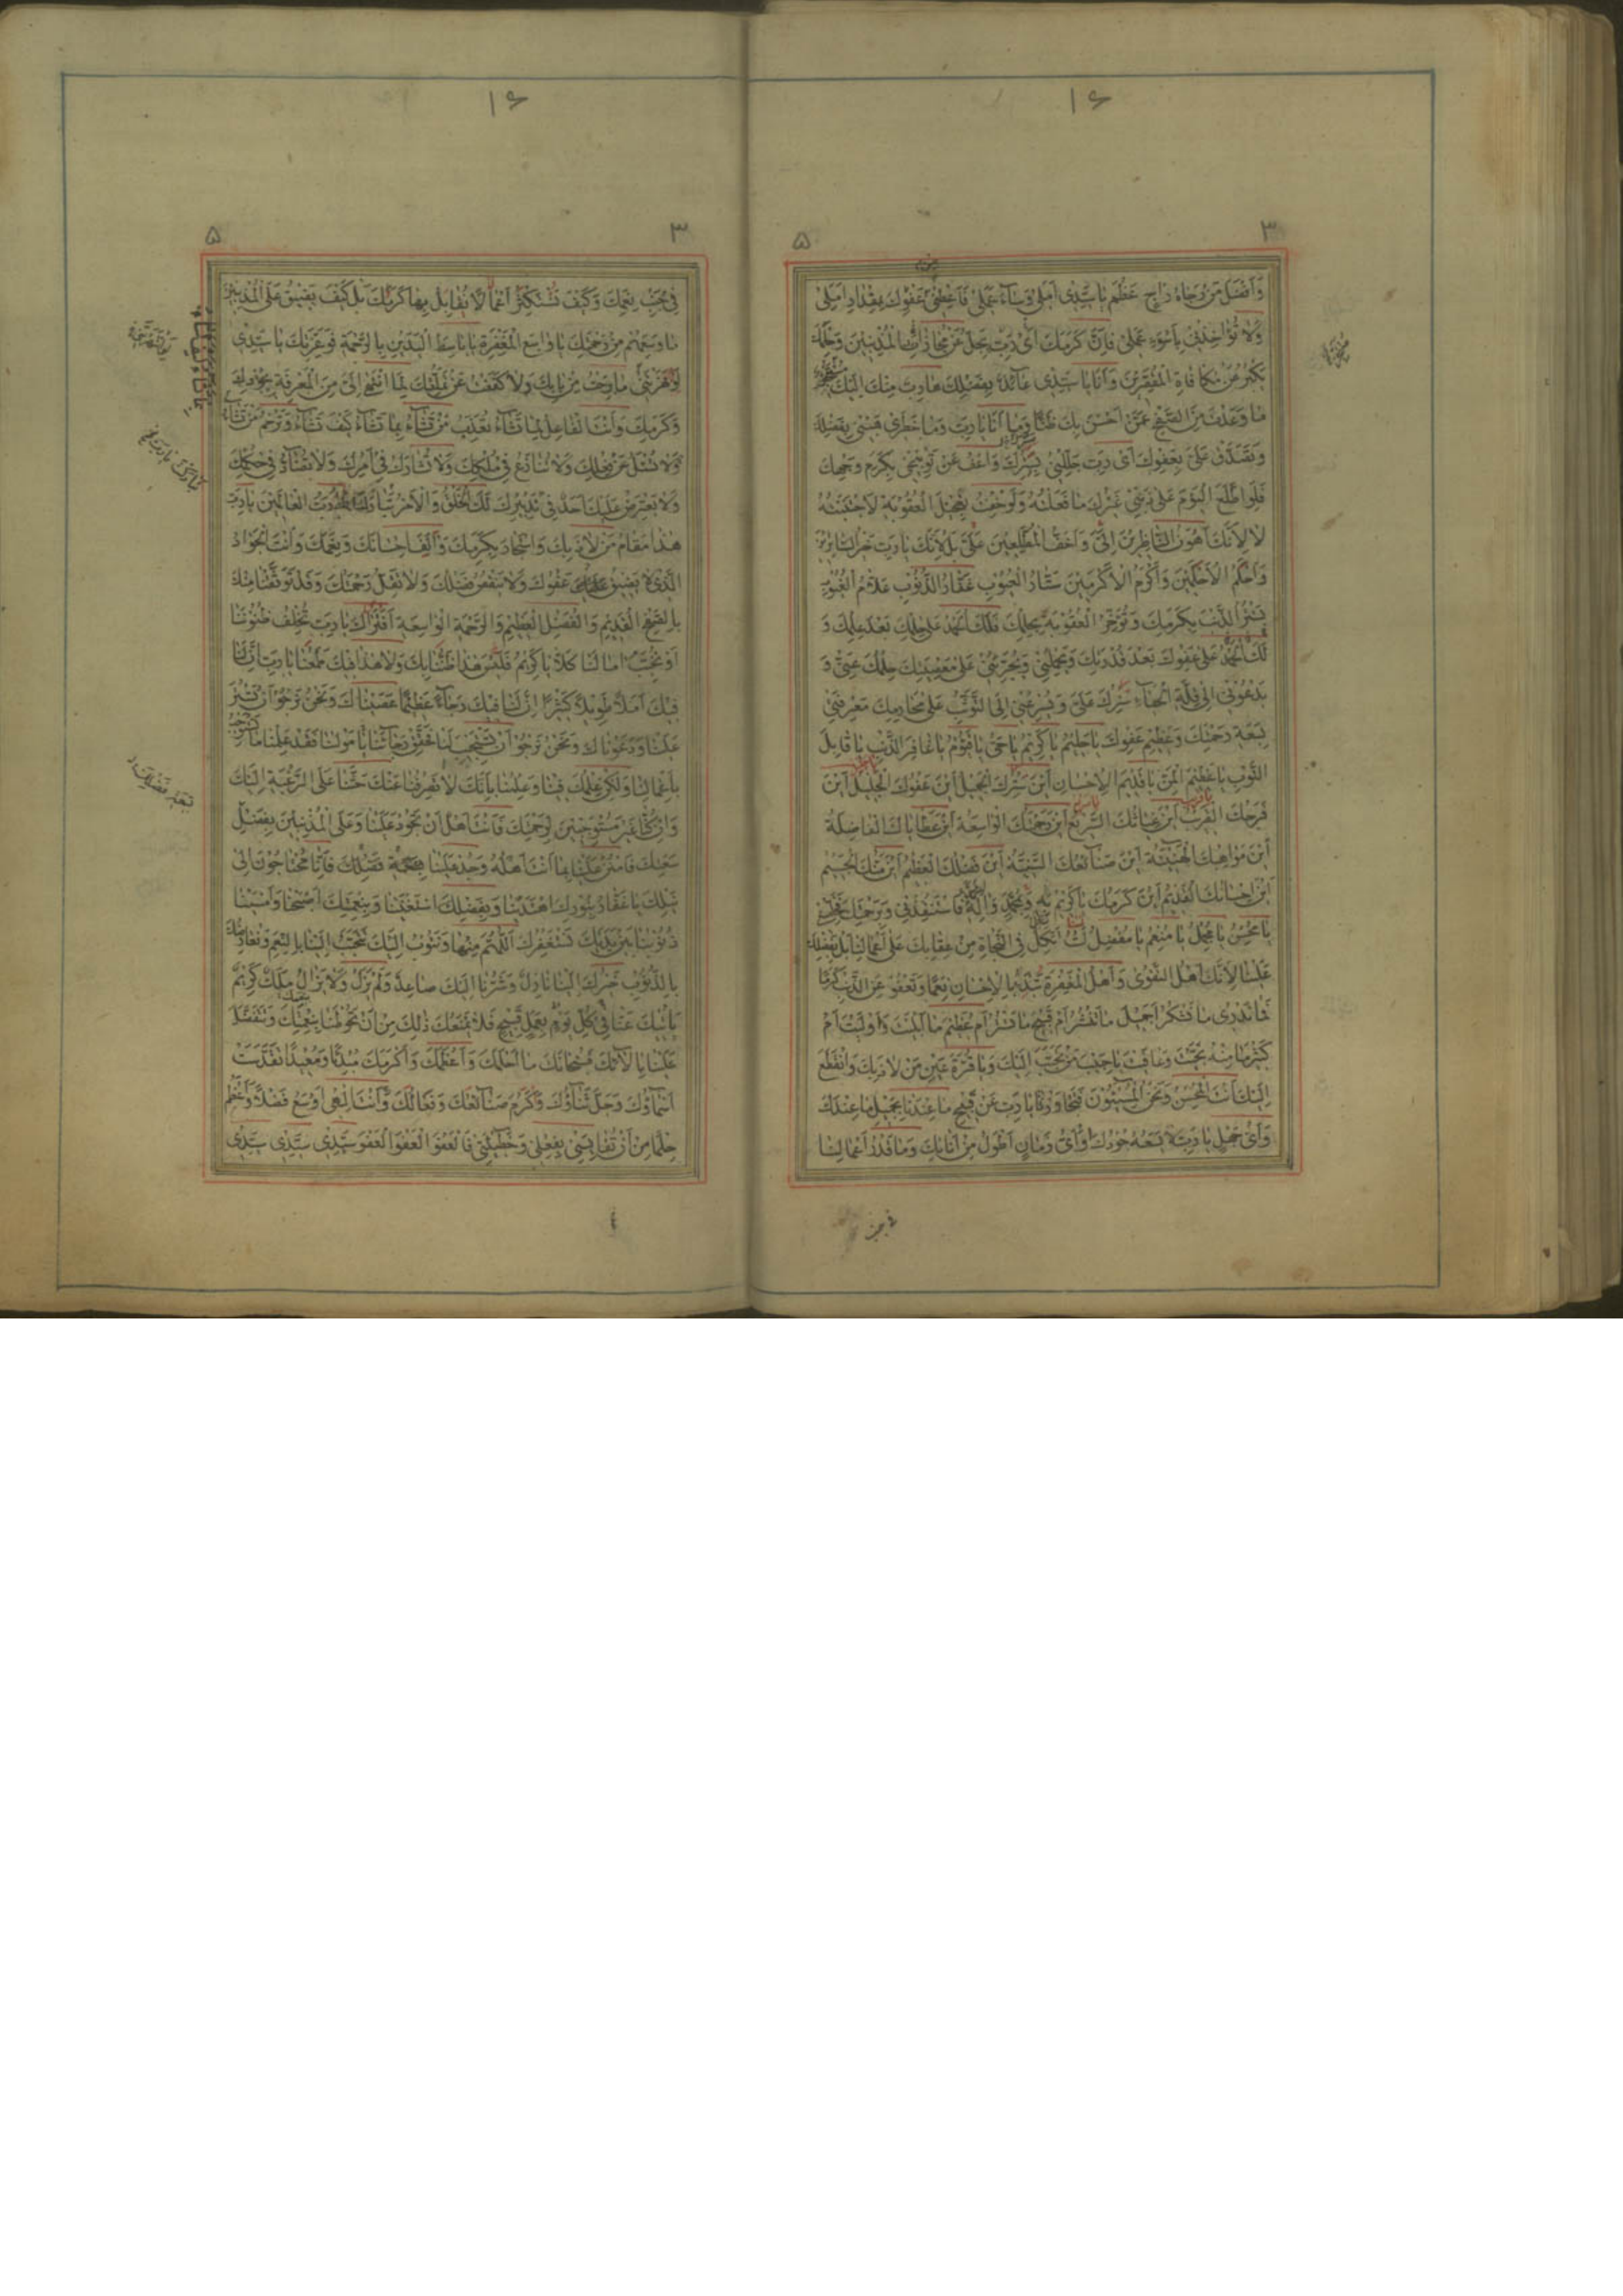 ۱۶
۳
۵
وَاَفْضَلَ مَنْ رَجاهُ راجٍ عَظُمَ يا سَيِّدى اَمَلى وَسٰآءَ عَمَلى فَاَعْطِنى مِنْ عَفْوِكَ بِمِقْدارِ اَمَلى
وَلا تُؤاخِذْنى بِاَسْوَءِ عَمَلى فَاِنَّ كَرَمَكَ اَىْ رَبِّ يَجِلُّ عَنْ مُجازاةِ الْمُذْنِبينَ وَحِلْمَكَ
يَكْبُرُ عَنْ مُكافاةِ الْمُقَصِّرينَ وَاَنَا يا سَيِّدى عائِذٌ بِفَضْلِكَ هارِبٌ مِنْكَ اِلَيْكَ مُتَنَجِّزٌ
ما وَعَدْتَ مِنَ الصَّفْحِ عَمَّنْ اَحْسَنَ بِكَ ظَنًّا وَما اَنَا يا رَبِّ وَما خَطَرى هَبْنى بِفَضْلِكَ
وَتَصَدَّقْ عَلَىَّ بِعَفْوِكَ اَىْ رَبِّ جَلِّلْنى بِسَتْرِكَ وَاعْفُ عَنْ تَوْبيخى بِكَرَمِ وَجْهِكَ
فَلَوِ اطَّلَعَ الْيَوْمَ عَلى ذَنْبى غَيْرُكَ ما فَعَلْتُهُ وَلَوْ خِفْتُ تَعْجيلَ الْعُقُوبَةِ لَاجْتَنَبْتُهُ
لا لِاَنَّكَ اَهْوَنُ النّاظِرينَ اِلَىَّ وَاَخَفُّ الْمُطَّلِعينَ عَلَىَّ بَلْ لِاَنَّكَ يا رَبِّ خَيْرُ السّاتِرينَ
وَاَحْكَمُ الْاَحْكَمينَ وَاَكْرَمُ الْاَكْرَمينَ سَتّارُ الْعُيُوبِ غَفّارُ الذُّنُوبِ عَلّامُ الْغُيُوبِ
تَسْتُرُ الذَّنْبَ بِكَرَمِكَ وَتُؤَخِّرُ الْعُقُوبَةَ بِحِلْمِكَ فَلَكَ الْحَمْدُ عَلى حِلْمِكَ بَعْدَ عِلْمِكَ وَ
لَكَ الْحَمْدُ عَلى عَفْوِكَ بَعْدَ قُدْرَتِكَ وَيَحْمِلُنى وَيُجَرِّئُنى عَلى مَعْصِيَتِكَ حِلْمُكَ عَنّى وَ
يَدْعُونى اِلى قِلَّةِ الْحَيآءِ سَتْرُكَ عَلَىَّ وَيُسْرِعُنى اِلَى التَّوَثُّبِ عَلى مَحارِمِكَ مَعْرِفَتى
بِسَعَةِ رَحْمَتِكَ وَعَظيمِ عَفْوِكَ يا حَليمُ يا كَريمُ يا حَىُّ يا قَيُّومُ يا غافِرَ الذَّنْبِ يا قابِلَ
التَّوْبِ يا عَظيمَ الْمَنِّ يا قَديمَ الْاِحْسانِ اَيْنَ سَتْرُكَ الْجَميلُ اَيْنَ عَفْوُكَ الْجَليلُ اَيْنَ
فَرَجُكَ الْقَريبُ اَيْنَ غِياثُكَ السَّريعُ اَيْنَ رَحْمَتُكَ الْواسِعَةُ اَيْنَ عَطاياكَ الْفاضِلَةُ
اَيْنَ مَواهِبُكَ الْهَنيئَةُ اَيْنَ صَنآئِعُكَ السَّنِيَّةُ اَيْنَ فَضْلُكَ الْعَظيمُ اَيْنَ مَنُّكَ الْجَسيمُ
اَيْنَ اِحْسانُكَ الْقَديمُ اَيْنَ كَرَمُكَ يا كَريمُ بِهِ وَبِمُحَمَّدٍ وَالِهِ فَاسْتَنْقِذْنى وَبِرَحْمَتِكَ فَخَلِّصْنى
يا مُحْسِنُ يا مُجْمِلُ يا مُنْعِمُ يا مُفْضِلُ لَسْتُ اَتَّكِلُ فِى النَّجاةِ مِنْ عِقابِكَ عَلى اَعْمالِنا بَلْ بِفَضْلِكَ
عَلَيْنا لِاَنَّكَ اَهْلُ التَّقْوى وَاَهْلُ الْمَغْفِرَةِ تُبْدِئُ بِالْاِحْسانِ نِعَمًا وَتَعْفُو عَنِ الذَّنْبِ كَرَمًا
فَما نَدْرى ما نَشْكُرُ اَجَميلَ ما تَنْشُرُ اَمْ قَبيحَ ما تَسْتُرُ اَمْ عَظيمَ ما اَبْلَيْتَ وَاَوْلَيْتَ اَمْ
كَثيرَ ما مِنْهُ نَجَّيْتَ وَعافَيْتَ يا حَبيبَ مَنْ تَحَبَّبَ اِلَيْكَ وَيا قُرَّةَ عَيْنِ مَنْ لاذَ بِكَ وَانْقَطَعَ
اِلَيْكَ اَنْتَ الْمُحْسِنُ وَنَحْنُ الْمُسيئُونَ فَتَجاوَزْ يا رَبِّ عَنْ قَبيحِ ما عِنْدَنا بِجَميلِ ما عِنْدَكَ
وَاَىُّ جَهْلٍ يا رَبِّ لا يَسَعُهُ جُودُكَ اَوْ اَىُّ زَمانٍ اَطْوَلُ مِنْ اَناتِكَ وَما قَدْرُ اَعْمالِنا
۱۶
۳
۵
فى جَنْبِ نِعَمِكَ وَكَيْفَ نَسْتَكْثِرُ اَعْمالًا نُقابِلُ بِها كَرَمَكَ بَلْ كَيْفَ يَضيقُ عَلَى الْمُذْنِبينَ
ما وَسِعَهُمْ مِنْ رَحْمَتِكَ يا واسِعَ الْمَغْفِرَةِ يا باسِطَ الْيَدَيْنِ بِالرَّحْمَةِ فَوَعِزَّتِكَ يا سَيِّدى
لَوْ نَهَرْتَنى ما بَرِحْتُ مِنْ بابِكَ وَلا كَفَفْتُ عَنْ تَمَلُّقِكَ لِمَا انْتَهى اِلَىَّ مِنَ الْمَعْرِفَةِ بِجُودِكَ
وَكَرَمِكَ وَاَنْتَ الْفاعِلُ لِما تَشآءُ تُعَذِّبُ مَنْ تَشآءُ بِما تَشآءُ كَيْفَ تَشآءُ وَتَرْحَمُ مَنْ تَشآءُ
وَلا تُسْئَلُ عَنْ فِعْلِكَ وَلا تُنازَعُ فى مُلْكِكَ وَلا تُشارَكُ فى اَمْرِكَ وَلا تُضآدُّ فى حُكْمِكَ
وَلا يَعْتَرِضُ عَلَيْكَ اَحَدٌ فى تَدْبيرِكَ لَكَ الْخَلْقُ وَالْاَمْرُ تَبارَكَ اللهُ رَبُّ الْعالَمينَ يا رَبِّ
هذا مَقامُ مَنْ لاذَ بِكَ وَاسْتَجارَ بِكَرَمِكَ وَاَلِفَ اِحْسانَكَ وَنِعَمَكَ وَاَنْتَ الْجَوادُ
الَّذى لا يَضيقُ عَفْوُكَ وَلا يَنْقُصُ فَضْلُكَ وَلا تَقِلُّ رَحْمَتُكَ وَقَدْ تَوَثَّقْنا مِنْكَ
بِالصَّفْحِ الْقَديمِ وَالْفَضْلِ الْعَظيمِ وَالرَّحْمَةِ الْواسِعَةِ اَفَتُراكَ يا رَبِّ تُخْلِفُ ظُنُونَنا
اَوْ تُخَيِّبُ امالَنا كَلّا يا كَريمُ فَلَيْسَ هذا ظَنُّنا بِكَ وَلا هذا فيكَ طَمَعُنا يا رَبِّ اِنَّ لَنا
فيكَ اَمَلًا طَويلًا كَثيرًا اِنَّ لَنا فيكَ رَجآءً عَظيمًا عَصَيْناكَ وَنَحْنُ نَرْجُوا اَنْ تَسْتُرَ
عَلَيْنا وَدَعَوْناكَ وَنَحْنُ نَرْجُوا اَنْ تَسْتَجيبَ لَنا فَحَقِّقْ رَجآئَنا يا مَوْلانا فَقَدْ عَلِمْنا ما نَسْتَوْجِبُ
بِاَعْمالِنا وَلكِنْ عِلْمُكَ فينا وَعِلْمُنا بِاَنَّكَ لا تَصْرِفُنا عَنْكَ حَثَّنا عَلَى الرَّغْبَةِ اِلَيْكَ
وَاِنْ كُنّا غَيْرَ مُسْتَوْجِبينَ لِرَحْمَتِكَ فَاَنْتَ اَهْلٌ اَنْ تَجُودَ عَلَيْنا وَعَلَى الْمُذْنِبينَ بِفَضْلِ
سَعَتِكَ فَامْنُنْ عَلَيْنا بِما اَنْتَ اَهْلُهُ وَجُدْ عَلَيْنا فَضْلِكَ فَاِنّا مُحْتاجُونَ اِلى
نَيْلِكَ يا غَفّارُ بِنُورِكَ اهْتَدَيْنا وَبِفَضْلِكَ اسْتَغْنَيْنا وَبِنِعْمَتِكَ اَصْبَحْنا وَاَمْسَيْنا
ذُنُوبُنا بَيْنَ يَدَيْكَ نَسْتَغْفِرُكَ اَللّهُمَّ مِنْها وَنَتُوبُ اِلَيْكَ تَتَحَبَّبُ اِلَيْنا بِالنِّعَمِ وَنُعارِضُكَ
بِالذُّنُوبِ خَيْرُكَ اِلَيْنا نازِلٌ وَشَرُّنا اِلَيْكَ صاعِدٌ وَلَمْ يَزَلْ وَلا يَزالُ مَلَكٌ كَريمٌ
يَاْتيكَ عَنّا فى كُلِّ يَوْمٍ بِعَمَلٍ قَبيحٍ فَلا يَمْنَعُكَ ذلِكَ مِنْ اَنْ تَحُوطَنا بِنِعَمِكَ وَتَتَفَضَّلَ
عَلَيْنا بِالائِكَ فَسُبْحانَكَ ما اَحْلَمَكَ وَاَعْظَمَكَ وَاَكْرَمَكَ مُبْدِئًا وَمُعيدًا تَقَدَّسَتْ
اَسْمآؤُكَ وَجَلَّ ثَنآؤُكَ وَكَرُمَ صَنآئِعُكَ وَفَعالُكَ وَاَنْتَ اِلهى اَوْسَعُ فَضْلًا وَاَعْظَمُ
حِلْمًا مِنْ اَنْ تُقايِسَنى بِفِعْلى وَخَطيئَتى فَالْعَفْوَ الْعَفْوَ الْعَفْوَ سَيِّدى سَيِّدى سَيِّدى
فى جنب